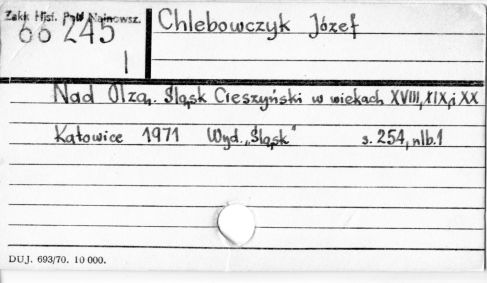 Zakł. Hist. Pow. Najnowsz.
66 245
I
Chlebowczyk Józef
Nad Olzą. Śląsk Cieszyński w wiekach XVIII, XIX, i XX
Katowice 1971 Wyd. „Śląsk" s. 254, nlb. 1
DUJ. 693/70. 10 000.